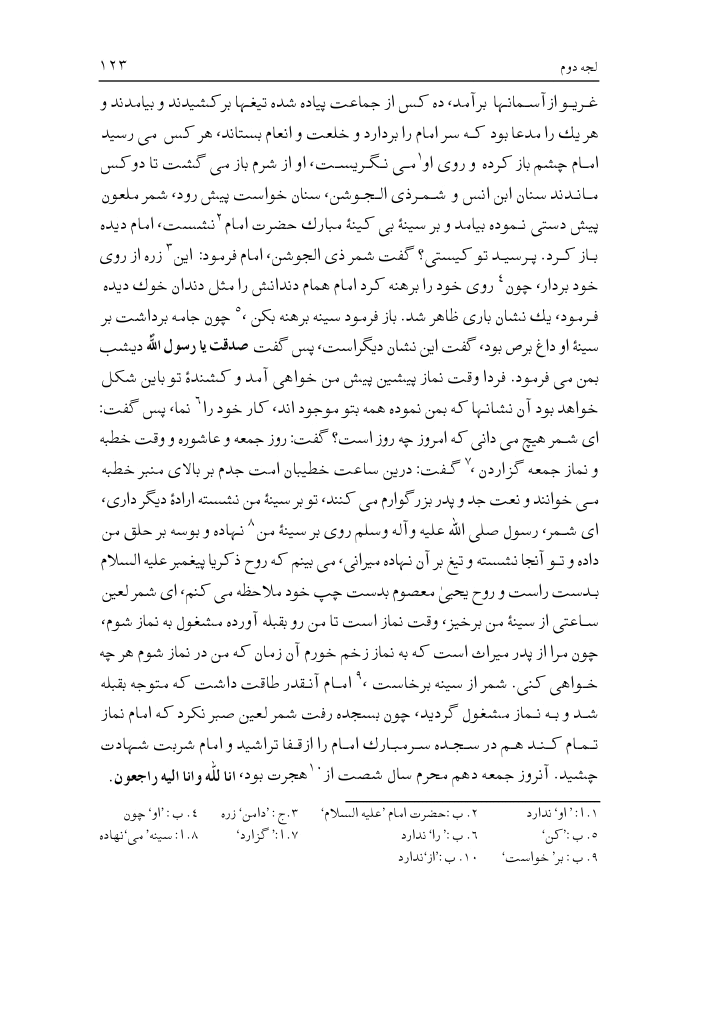 لجه دوم ۱۲۳
غریو از آسمانها برآمد، ده کس از جماعت پیاده شده تیغها برکشیدند و بیامدند و
هر یك را مدعا بود که سر امام را بردارد و خلعت و انعام بستاند، هر کس می رسید
امام چشم باز کرده و روی او۱ می نگریست، او از شرم باز می گشت تا دو کس
ماندند سنان ابن انس و شمرذی الجوشن، سنان خواست پیش رود، شمر ملعون
پیش دستی نموده بیامد و بر سینهٔ بی کینهٔ مبارك حضرت امام۲ نشست، امام دیده
باز کرد. پرسید تو کیستی؟ گفت شمر ذی الجوشن، امام فرمود: این۳ زره از روی
خود بردار، چون٤ روی خود را برهنه کرد امام همام دندانش را مثل دندان خوك دیده
فرمود، یك نشان باری ظاهر شد. باز فرمود سینه برهنه بکن ،٥ چون جامه برداشت بر
سینهٔ او داغ برص بود، گفت این نشان دیگراست، پس گفت صدقت یا رسول اللّٰه دیشب
بمن می فرمود. فردا وقت نماز پیشین پیش من خواهی آمد و کشندهٔ تو باین شکل
خواهد بود آن نشانها که بمن نموده همه بتو موجود اند، کار خود را٦ نما، پس گفت:
ای شمر هیچ می دانی که امروز چه روز است؟ گفت: روز جمعه و عاشوره و وقت خطبه
و نماز جمعه گزاردن ،۷ گفت: درین ساعت خطیبان امت جدم بر بالای منبر خطبه
می خوانند و نعت جد و پدر بزرگوارم می کنند، تو بر سینهٔ من نشسته ارادهٔ دیگر داری،
ای شمر، رسول صلی اللّٰه علیه وآله وسلم روی بر سینهٔ من۸ نهاده و بوسه بر حلق من
داده و تو آنجا نشسته و تیغ بر آن نهاده میرانی، می بینم که روح ذکریا پیغمبر علیه السلام
بدست راست و روح یحییٰ معصوم بدست چپ خود ملاحظه می کنم، ای شمر لعین
ساعتی از سینهٔ من برخیز، وقت نماز است تا من رو بقبله آورده مشغول به نماز شوم،
چون مرا از پدر میراث است که به نماز زخم خورم آن زمان که من در نماز شوم هر چه
خواهی کنی. شمر از سینه برخاست ،۹ امام آنقدر طاقت داشت که متوجه بقبله
شد و به نماز مشغول گردید، چون بسجده رفت شمر لعین صبر نکرد که امام نماز
تمام کند هم در سجده سرمبارك امام را ازقفا تراشید و امام شربت شهادت
چشید. آنروز جمعه دهم محرم سال شصت از۱۰ هجرت بود، انا للّٰه وانا الیه راجعون.
۱. ا: 'او' ندارد ۲. ب :حضرت امام 'علیه السلام' ۳.ج : 'دامن' زره ٤. ب : 'او' چون
٥. ب :'کن' ٦. ب :' را' ندارد ۷. ا:' گزارد' ۸. ا: سینه' می'نهاده
۹. ب : بر' خواست' ۱۰. ب :'از'ندارد